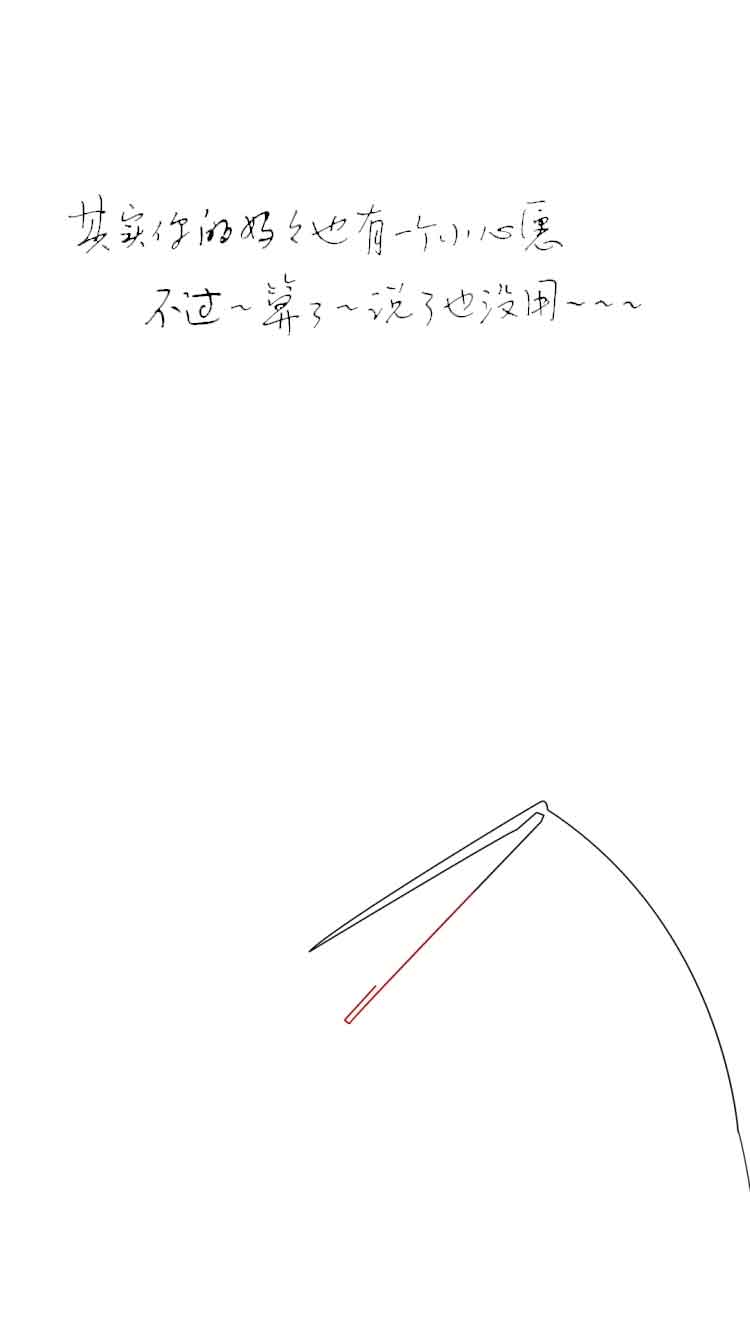 其实你的妈々也有一个小心愿
不过~算了~说了也没用~~~